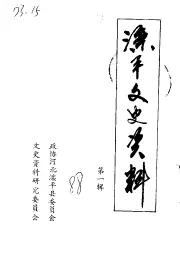 滦平文史资料
第一辑
88
政协河北滦平县委员会
文史资料研究委员会